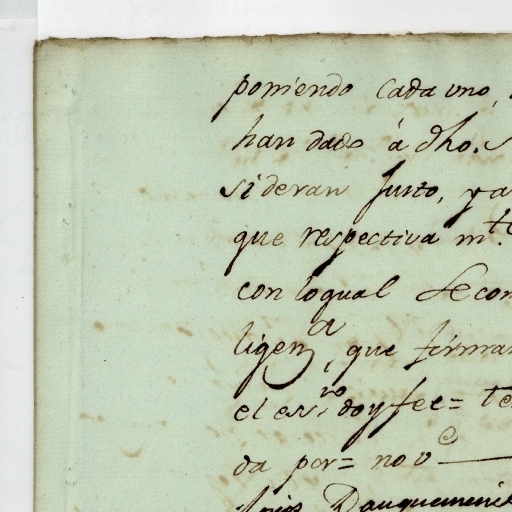 poniendo cada uno,
han dado á dho. S
sideran Justo, y a
que respectiva m.te
con loqual Secon
ligenª, que firma
el essno doy fee= te
da por= no vᵉ